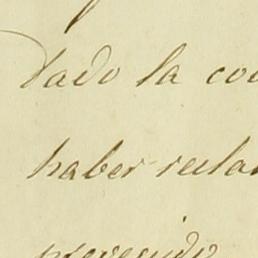 dado la co
haber recla
prevenido